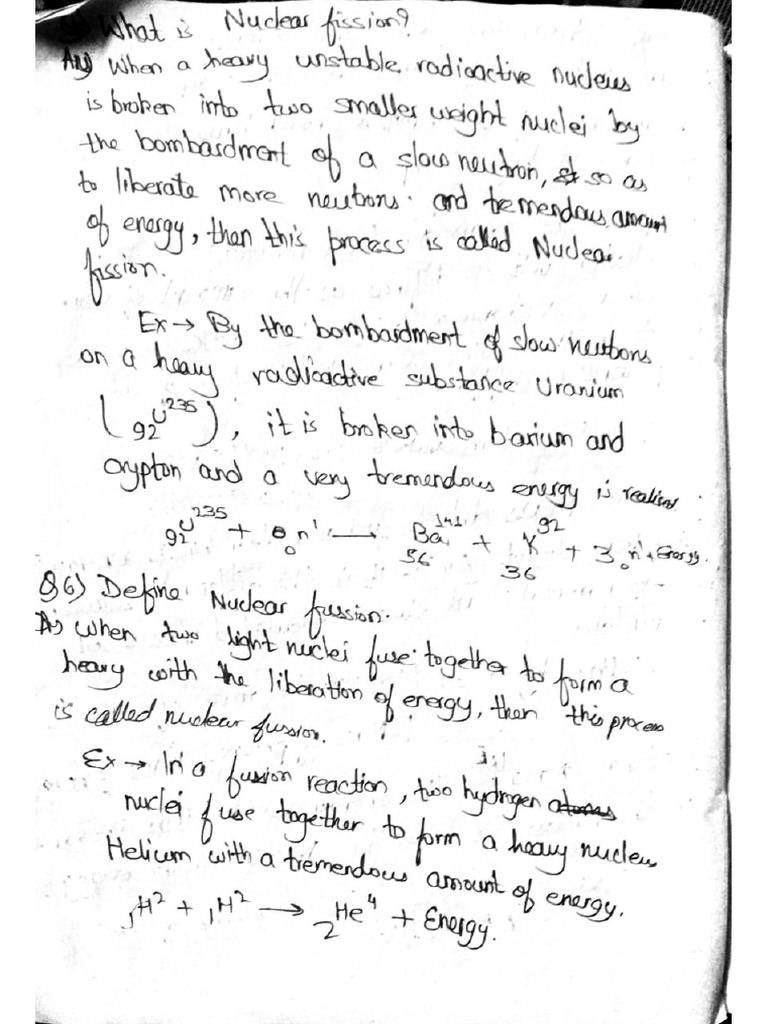 What is Nuclear fission?
Ans) When a heavy unstable radioactive nucleus
is broken into two smaller weight nuclei by
the bombardment of a slow neutron, so as
to liberate more neutrons. and tremendous amount
of energy, then this process is called Nuclear
fission.
Ex → By the bombardment of slow neutrons
on a heavy radioactive substance Uranium
(₉₂U²³⁵), it is broken into barium and
crypton and a very tremendous energy is
₉₂U²³⁵ + ₀n¹ → ₅₆Ba¹⁴¹ + ₃₆K⁹² + 3₀n¹ + Energy.
Q6) Define Nuclear fussion.
A) When two light nuclei fuse together to form a
heavy with the liberation of energy, then this process
is called nuclear fussion.
Ex → In a fussion reaction, two hydrogen atoms
nuclei fuse together to form a heavy nucleus
Helium with a tremendous amount of energy.
₁H² + ₁H² → ₂He⁴ + Energy.